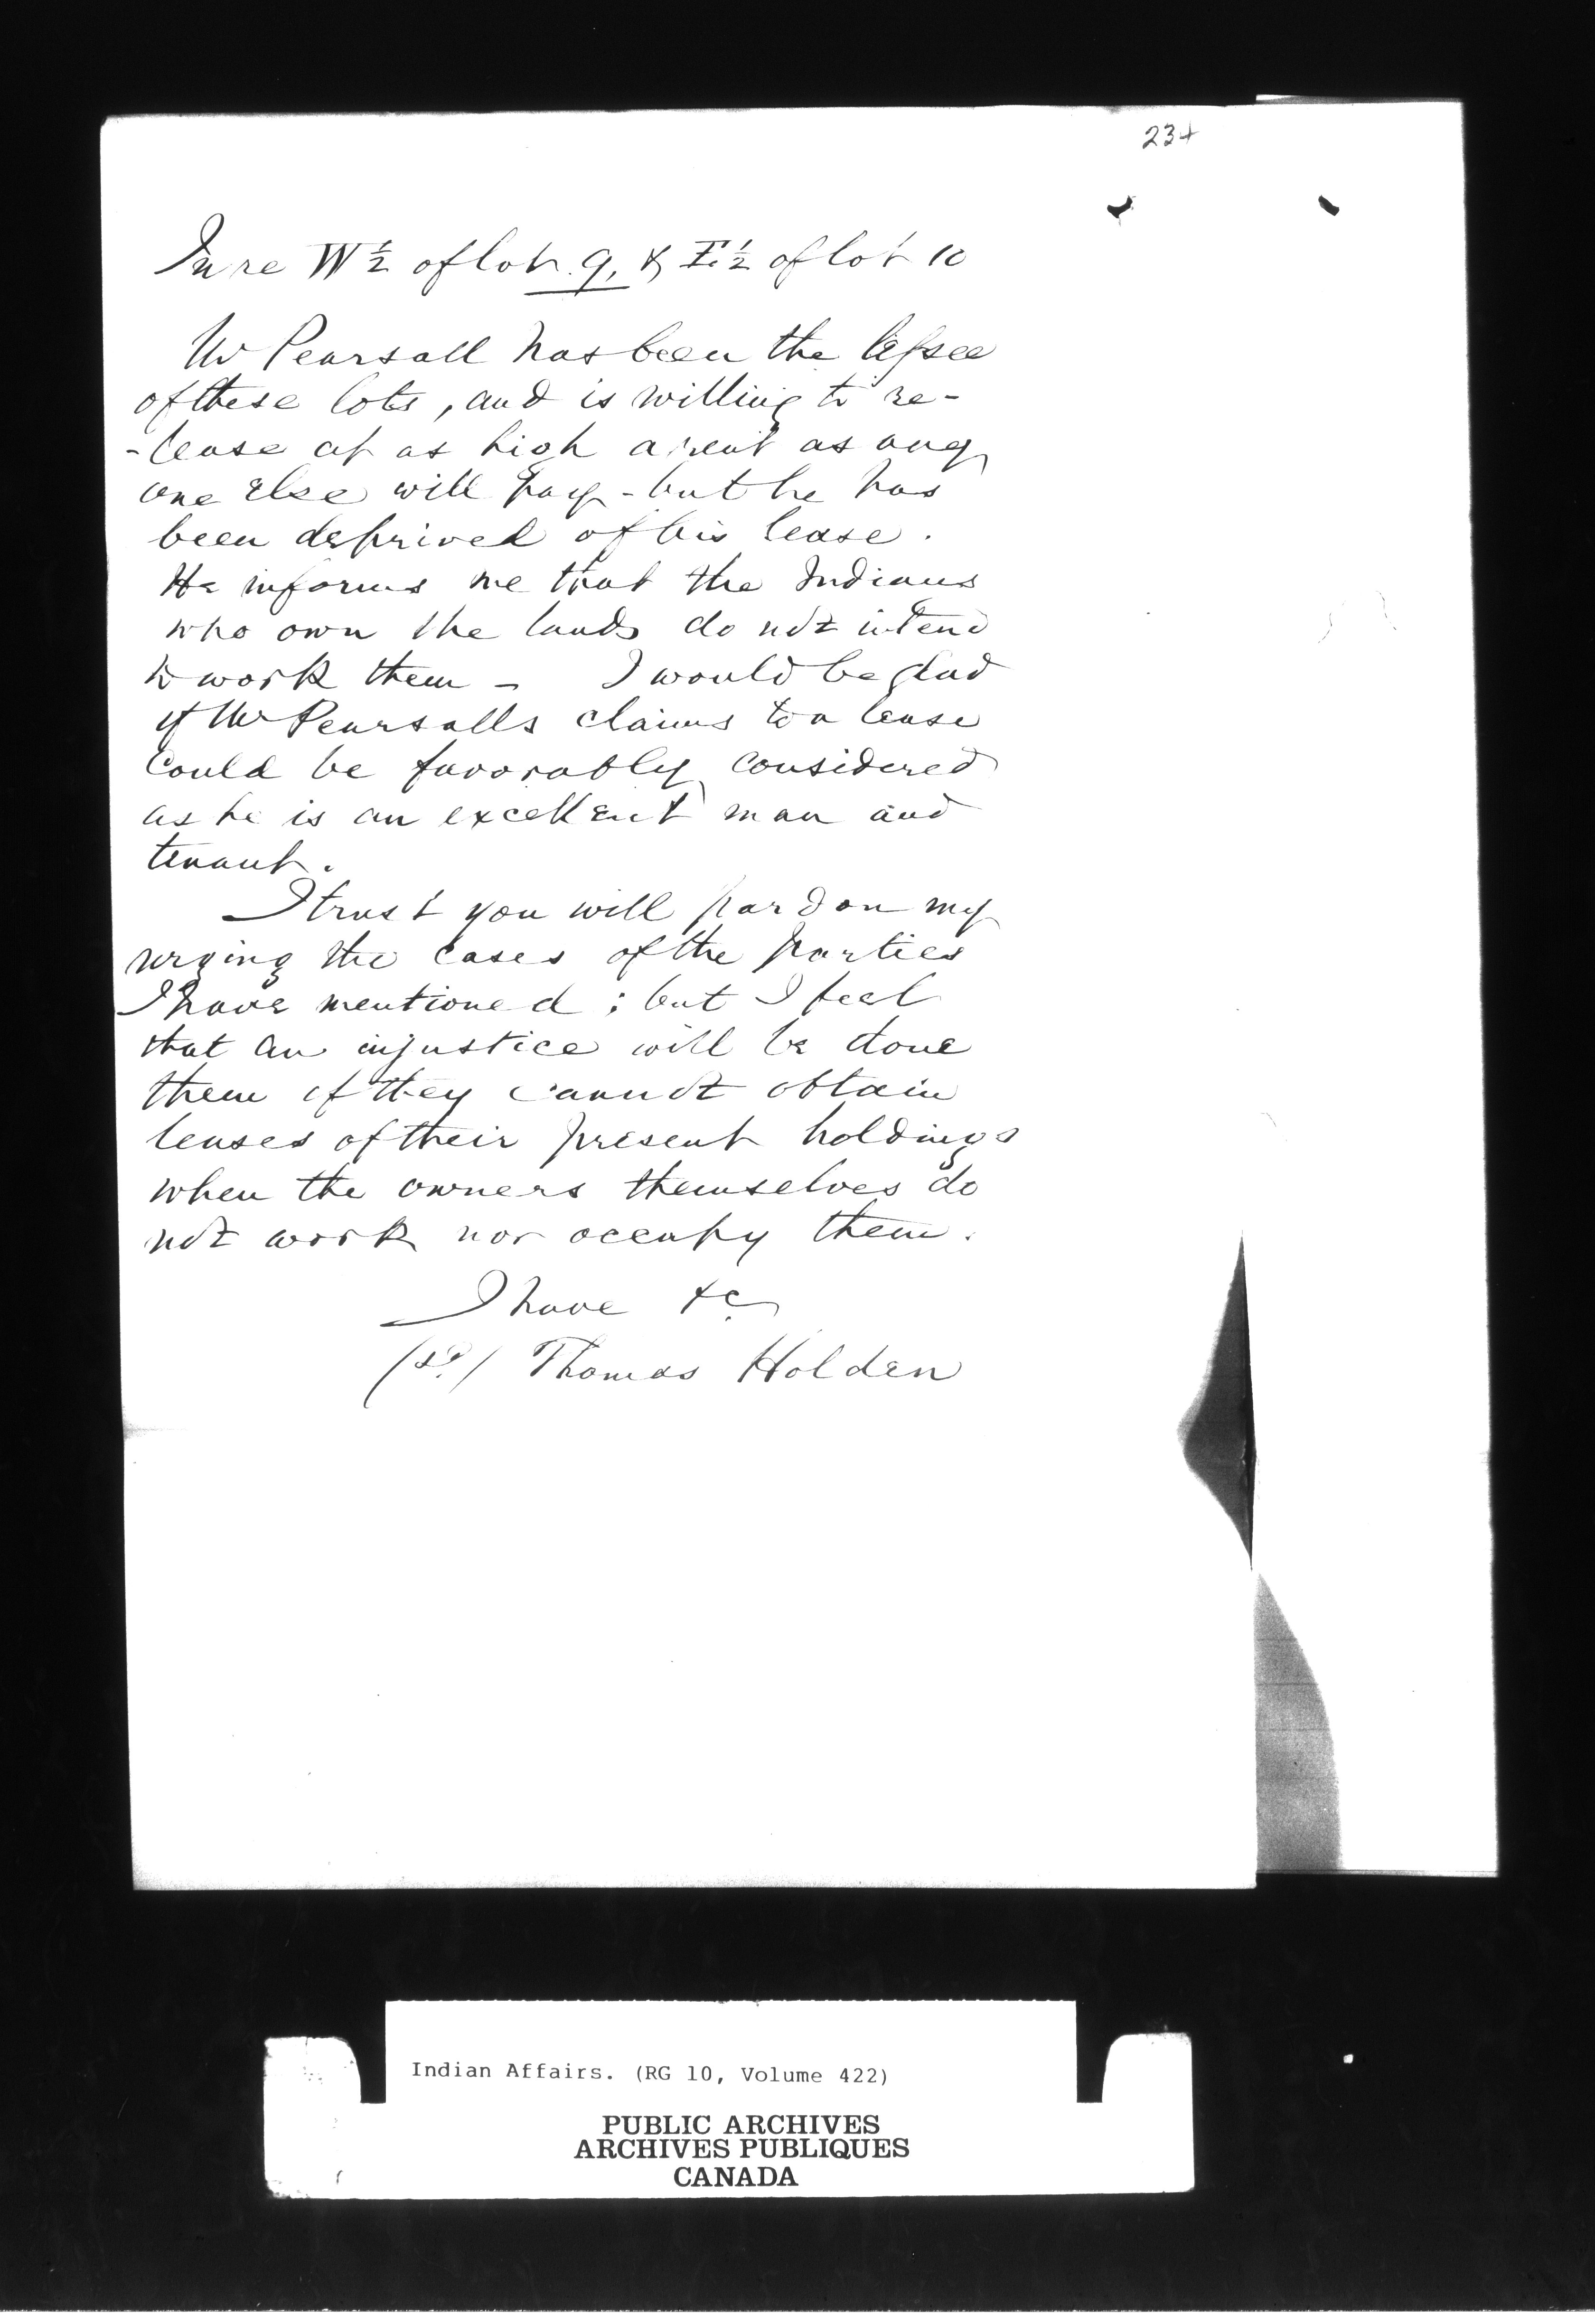 234
In re W ½ of lot 9, & E. ½ of lot 10
Mr Pearsall has been the lessee
of these lots, and is willing to re-
-lease at as high a rent as any
one else will pay - but he has
been deprived of his lease.
He informs me that the Indians
who own the lands do not intend
to work them - I would be glad
if Mr Pearsalls claims to a lease
could be favorably considered
as he is an excellent man and
tenant.
I trust you will pardon my
urging the cases of the parties
I have mentioned; but I feel
that an injustice will be done
them if they cannot obtain
leases of their present holdings
when the owners themselves do
not work nor occupy them.
I have &c
(sd.) Thomas Holden
Indian Affairs. (RG 10, Volume 422)
PUBLIC ARCHIVES
ARCHIVES PUBLIQUES
CANADA